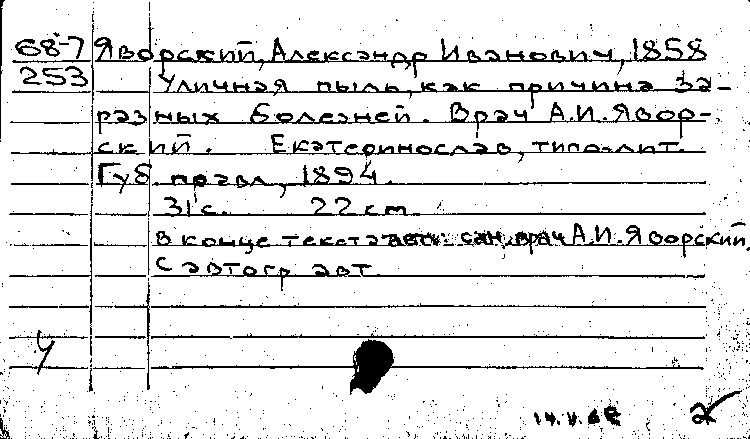 68-7 Яворский, Александр Иванович, 1858
253 Уличная пыль, как причина за-
разных болезней. Врач А.И. Явор-
ский. Екатеринослав, типо-лит.
Губ. правл., 1894.
31 с. 22 cm
В конце текста авт.: сан. врач А.И. Яворский.
С автогр. авт.
У
2